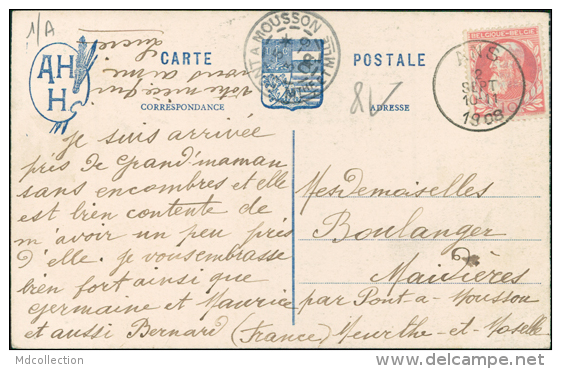 1/A
PONT A MOUSSON
MEURTHE
BELGIQUE·BELGIE
ANS
2
SEPT
10-11
1908
10
AH
H
CARTE
POSTALE
CORRESPONDANCE
ADRESSE
votre nièce qui
vous aime
Lucie
je suis arrivée
près de grand'maman
sans encombres et elle
est bien contente de
m'avoir un peu près
d'elle. je vous embrasse
bien fort ainsi que
Germaine et Maurice
et aussi Bernard
Mesdemoiselles
Boulanger
Maidières
par Pont-a-Mousson
(France) Meurthe-et-Moselle
Mdcollection
delcampe.net